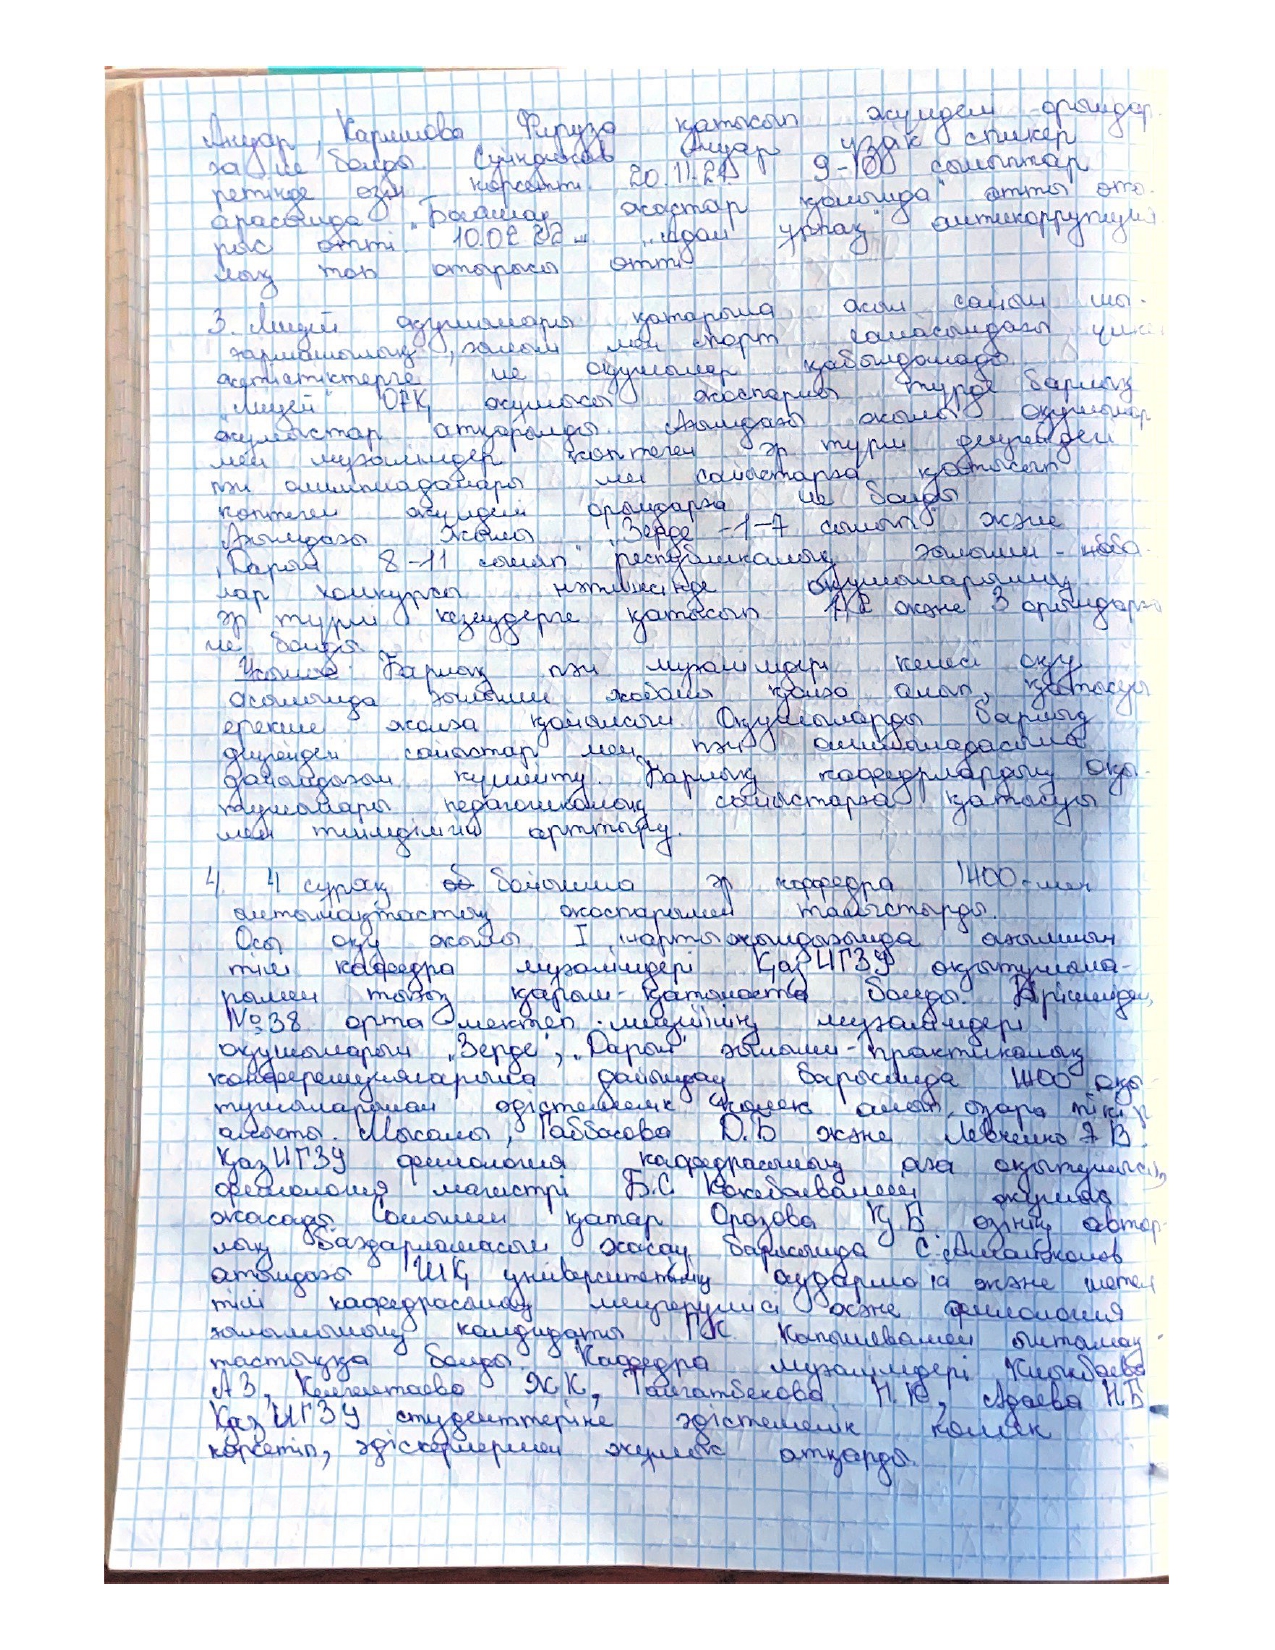 Ануар, Каримова Фируза қатысып жүлделі орындар-
ға ие болды. Ануар ұзақ спикер
ретінде өзін көрсетті. 20.11.21 9-10 сыныптар
арасында "Болашақ жастар қолында" атты оты-
рыс өтті. 10.02.22 "Адал ұрпақ" антикоррупция
лық топ отырысы өтті.
3. Лицей оқушылары қатарына жыл сайын шы-
ғармашылық, ғылым мен спорт саласындағы үлкен
жетістіктерге ие оқушылар қабылданады.
"Лицей" ОӘК жұмысы жоспарлы түрде барлық
жұмыстар атқарылды. Ағымдағы жылы оқушылар
мен мұғалімдер көптеген әр түрлі деңгейдегі
пән олимпиадалары мен сайыстарға қатысып
көптеген жүлделі орындарға ие болды.
Ағымдағы жылы "Зерде - 1-7 сынып" және
"Дарын 8-11 сынып" республикалық ғылыми-жоба-
лар конкурсы нәтижесінде оқушыларымыз
әр түрлі кезеңдерге қатысып 1, 2 және 3 орындарға
ие болды.
Ұсыныс: Барлық пән мұғалімдері келесі оқу
жылында ғылыми жобаны қолға алып, қатысуы
ерекше жолға қойылсын. Оқушыларды барлық
деңгейдегі сайыстар мен пән олимпиадасына
дайындығын күшейту. Барлық кафедралардың оқы-
тушылары педагогикалық сайыстарға қатысуы
мен тиімділігін арттыру.
4. 4 сұрақ бойынша әр кафедра ЖОО-мен
ынтымақтастық жоспарымен таныстырды.
Осы оқу жылы I жартыжылдығында ағылшын
тілі кафедра мұғалімдері ҚазИГЗУ оқытушыла-
рымен тығыз қарым-қатынаста болды. Біріншіден,
№38 орта мектеп-лицейінің мұғалімдері
оқушыларын "Зерде", "Дарын" ғылыми-практикалық
конференцияларына дайындау барысында ЖОО оқы-
тушыларынан әдістемелік көмек алып, өзара пікір
алысты. Мысалы, Габбасова Д.Б және Левченко А В.
ҚазИГЗУ филология кафедрасының аға оқытушысы,
филология магистрі Б.С Кокебаевамен жұмыс
жасады. Сонымен қатар Оразова Қ Б өзінің автор-
лық бағдарламасын жасау барысында С. Аманжолов
атындағы ШҚ университетінің аударма ісі және шетел
тілі кафедрасының меңгерушісі және филология
ғылымының кандидаты Г.К Капышевамен ынтымақ-
тастықта болды. Кафедра мұғалімдері Кныкбаева
А З, Келгентаева Ж К, Таңатбекова Н. Ю, Адаева Н.Б
ҚазИГЗУ студенттеріне әдістемелік көмек
көрсетіп, әдіскерлермен жұмыс атқарды.